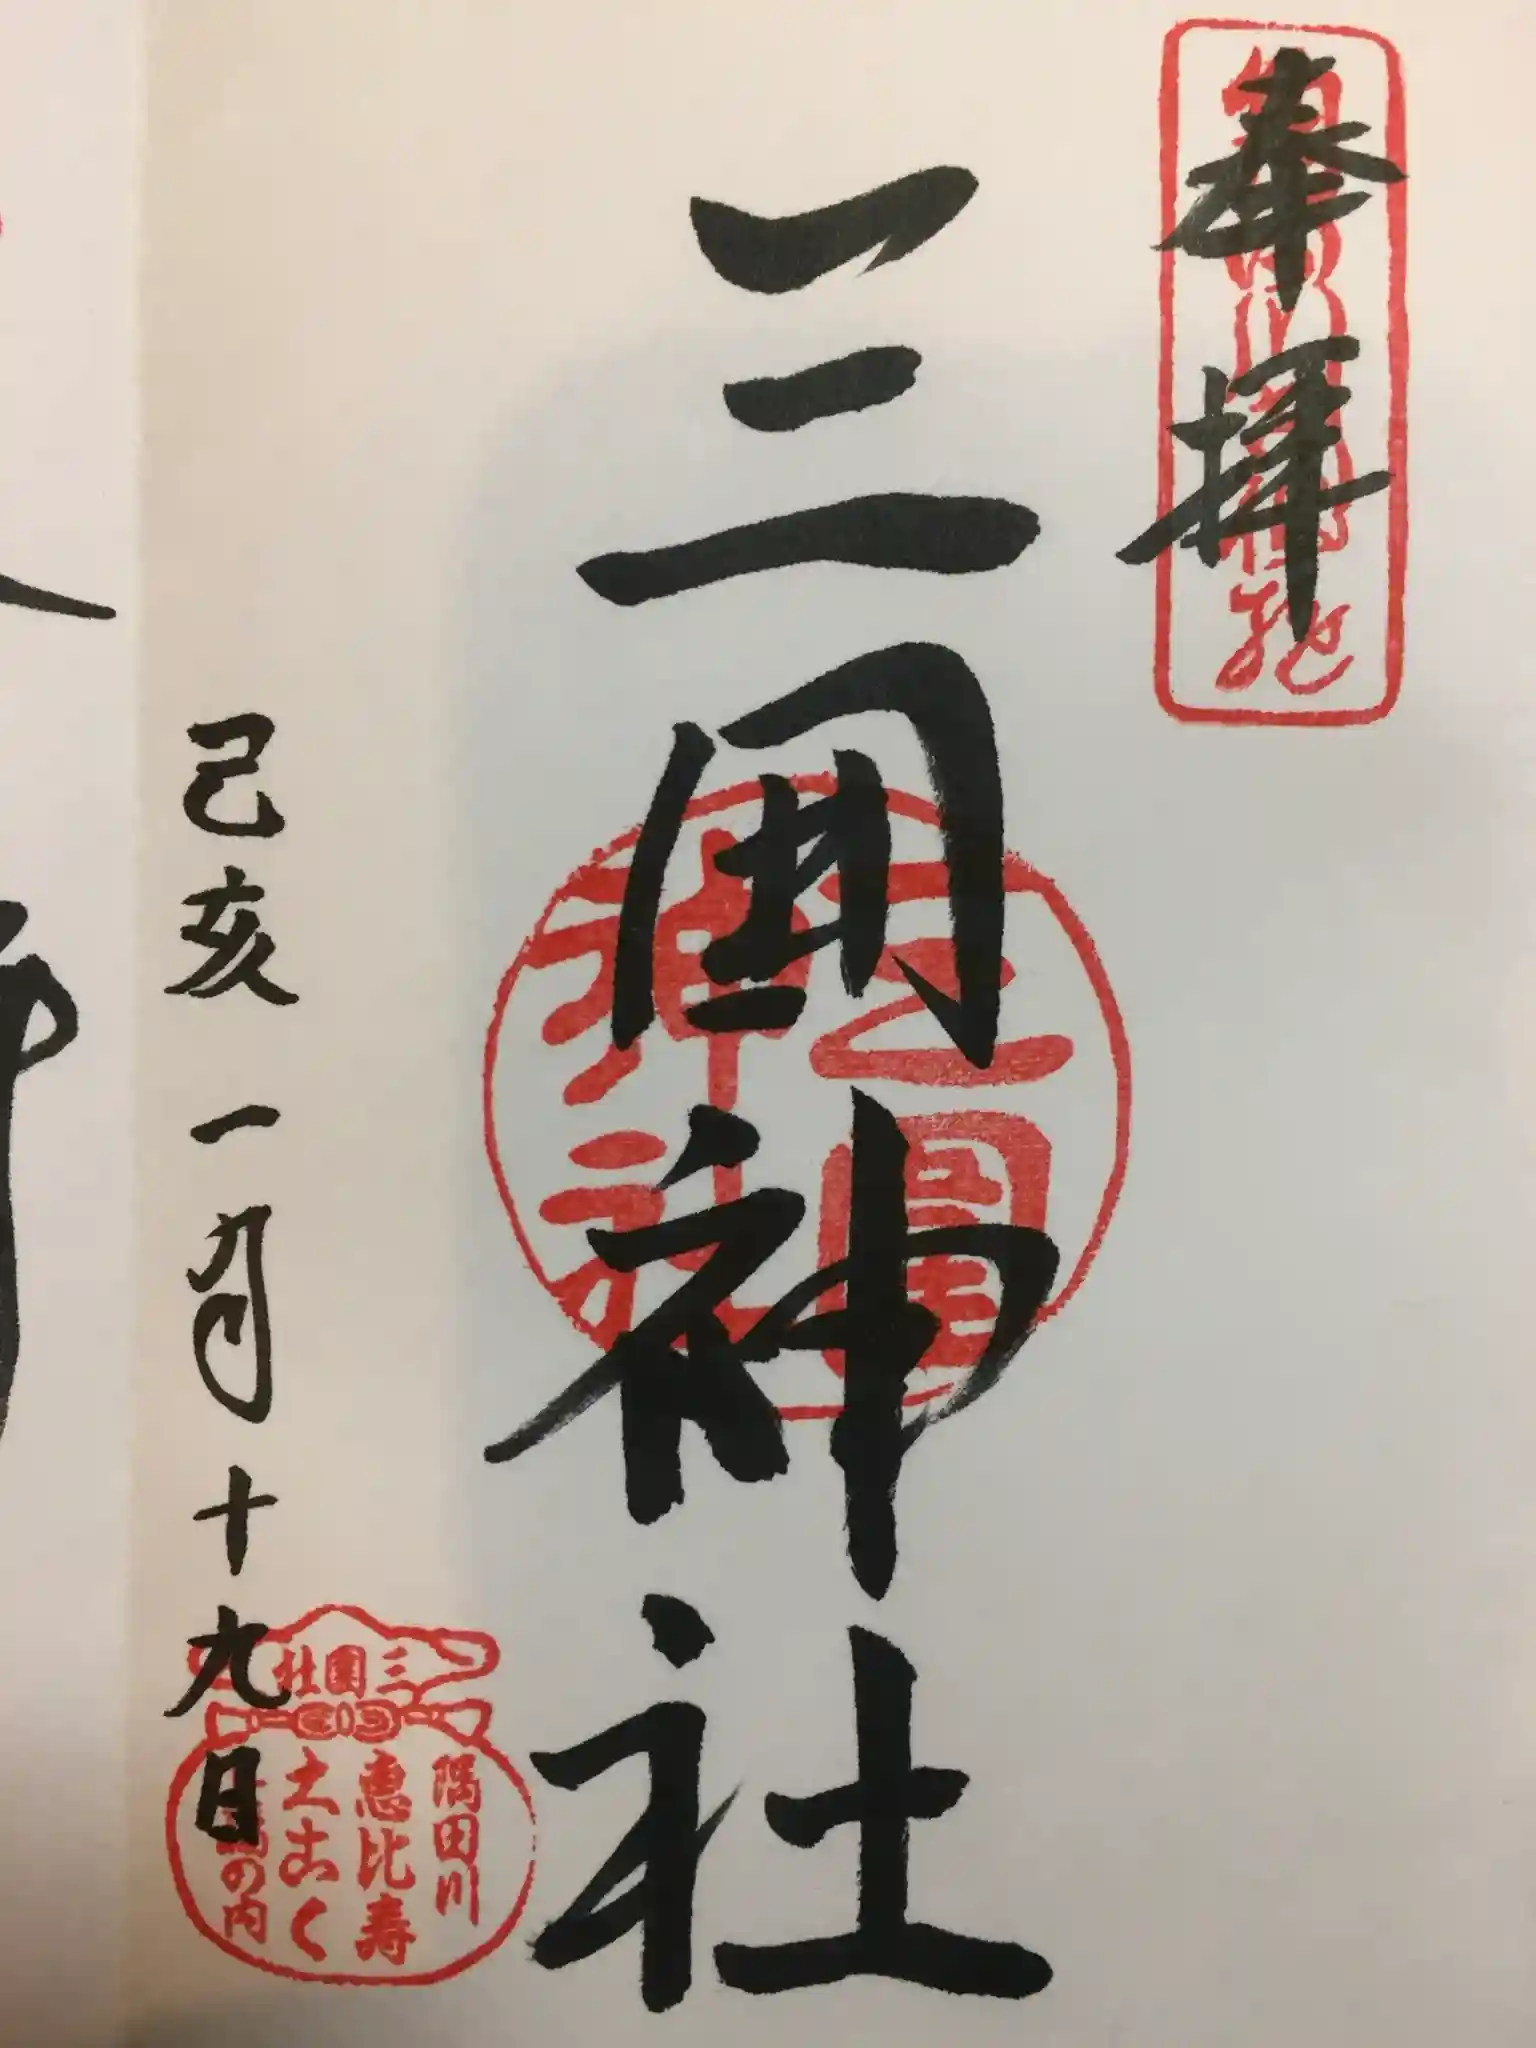 奉拝
三囲神社
三圍神社
己亥一月十九日
三圍社
隅田川
恵比寿
大こく
の内